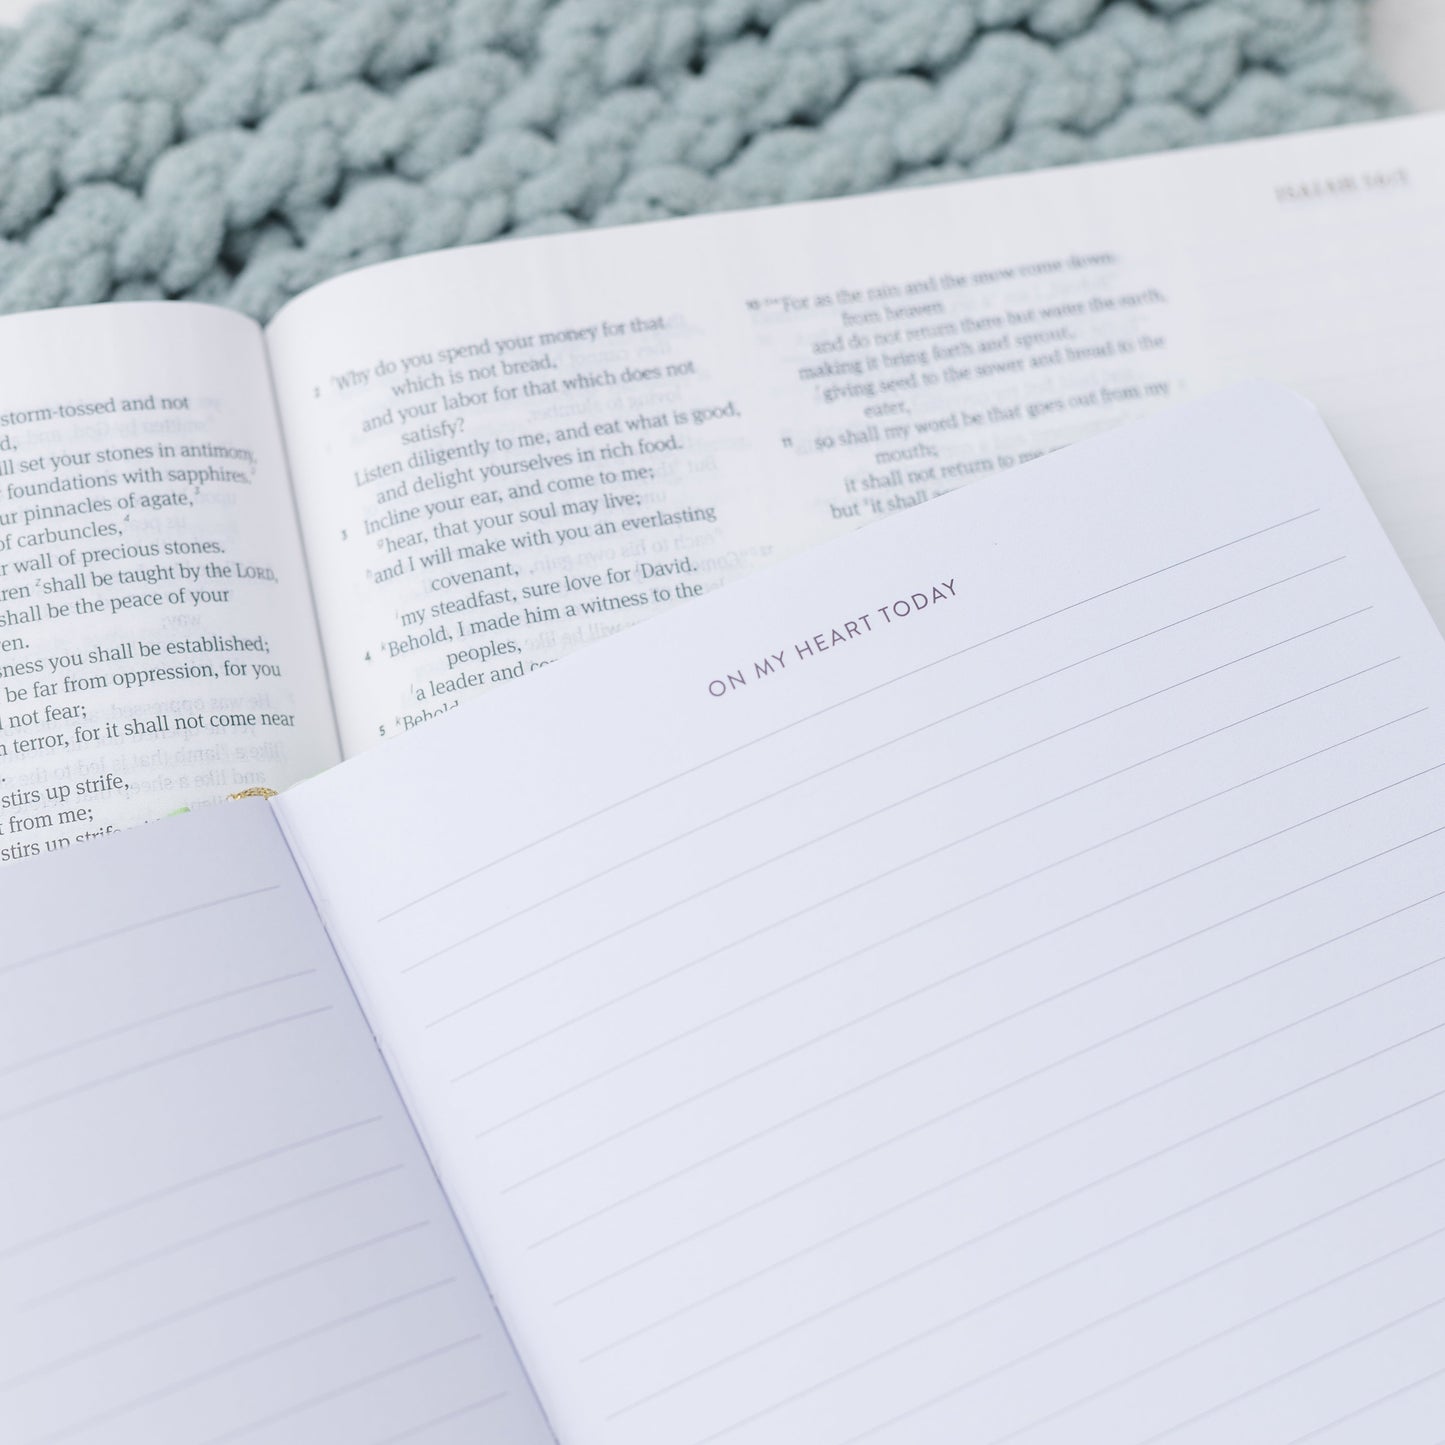 storm-tossed and not
d,
ll set your stones in antimony,
foundations with sapphires.²
ur pinnacles of agate,³
of carbuncles,⁴
r wall of precious stones.
ren ᶻshall be taught by the LORD,
shall be the peace of your
en.
sness you shall be established;
be far from oppression, for you
l not fear;
m terror, for it shall not come near
.
stirs up strife,
t from me;
stirs up strife
2 Why do you spend your money for that
which is not bread,
and your labor for that which does not
satisfy?
Listen diligently to me, and eat what is good,
and delight yourselves in rich food.
3 Incline your ear, and come to me;
ᵍhear, that your soul may live;
ʰand I will make with you an everlasting
covenant,
ⁱmy steadfast, sure love for ʲDavid.
4 ᵏBehold, I made him a witness to the
peoples,
ˡa leader and
5 ᵏBehold
10 "For as the rain and the snow come down
from heaven
and do not return there but water the earth,
making it bring forth and sprout,
giving seed to the sower and bread to the
eater,
11 so shall my word be that goes out from my
mouth;
it shall not return to me
but ᵛit shall
ON MY HEART TODAY